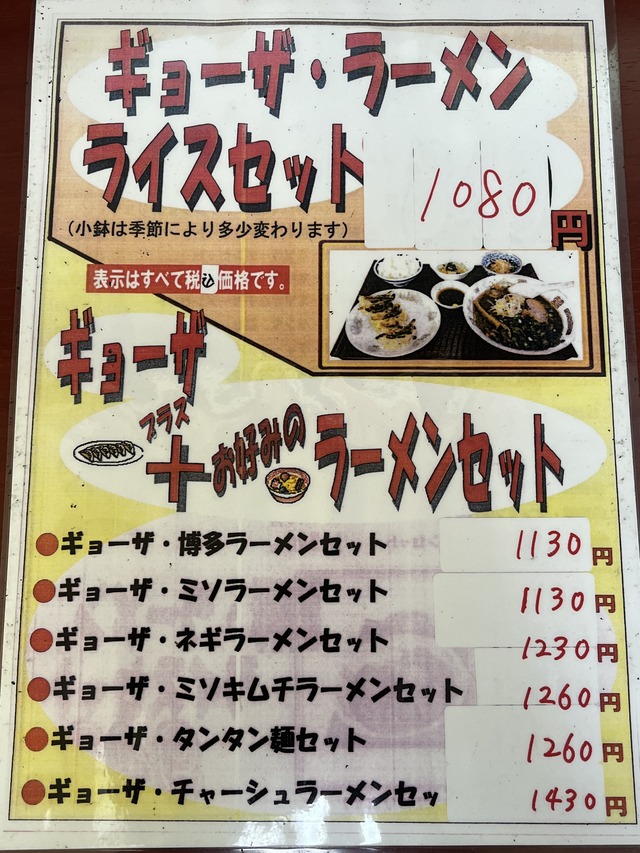 ギョーザ・ラーメン
ライスセット
1080円
(小鉢は季節により多少変わります)
表示はすべて税込価格です。
ギョーザ
プラス
+お好みのラーメンセット
●ギョーザ・博多ラーメンセット 1130円
●ギョーザ・ミソラーメンセット 1130円
●ギョーザ・ネギラーメンセット 1230円
●ギョーザ・ミソキムチラーメンセット 1260円
●ギョーザ・タンタン麺セット 1260円
●ギョーザ・チャーシュラーメンセッ 1430円